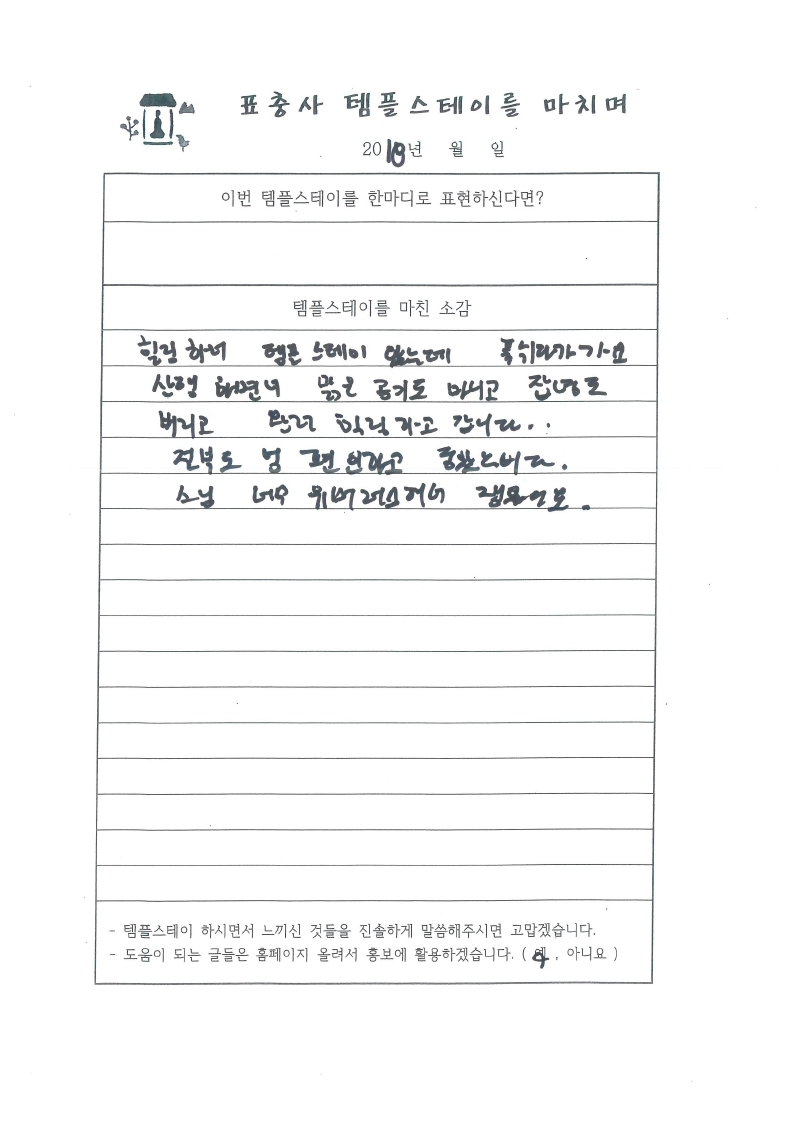 표충사 템플스테이를 마치며
2018년 월 일
이번 템플스테이를 한마디로 표현하신다면?
템플스테이를 마친 소감
힐링 하러 템플 스테이 왔는데 푹 쉬다가 가요
산행 하면서 맑은 공기도 마시고 잡념도
버리고 힐링하고 갑니다..
전부다 넘 편안하고 좋았습니다.
스님 너무
- 템플스테이 하시면서 느끼신 것들을 진솔하게 말씀해주시면 고맙겠습니다.
- 도움이 되는 글들은 홈페이지 올려서 홍보에 활용하겠습니다. ( 예 , 아니요 )